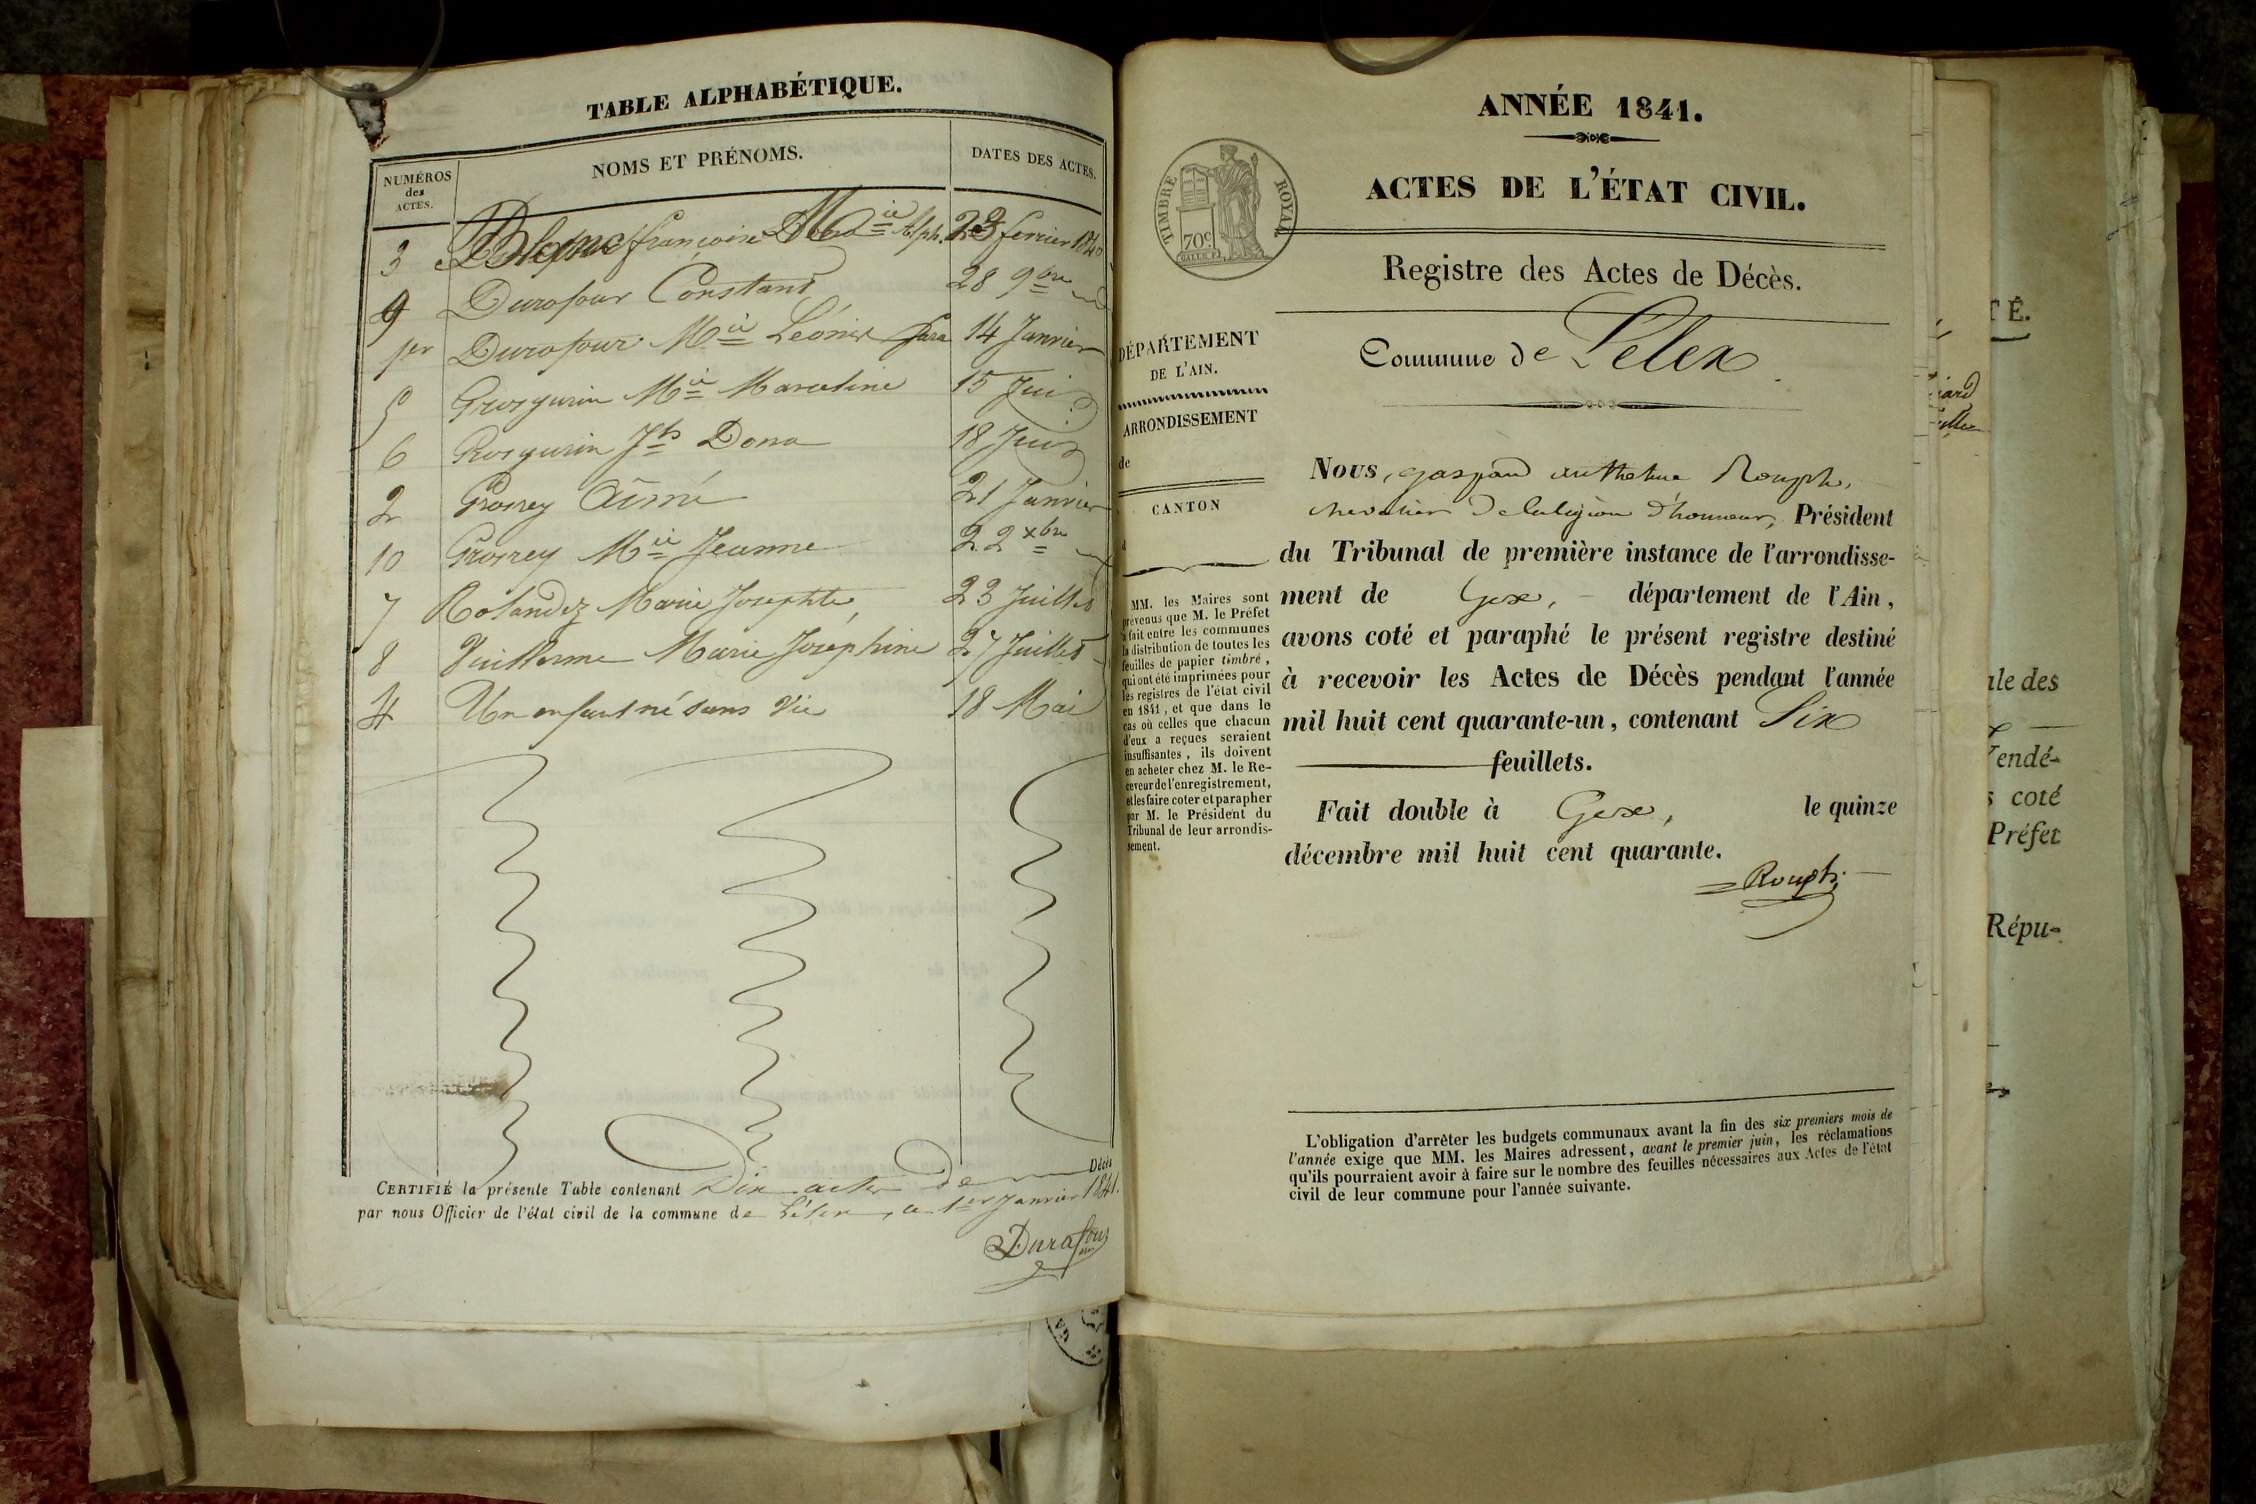 TABLE ALPHABÉTIQUE.
NUMÉROS
des
ACTES.
NOMS ET PRÉNOMS.
DATES DES ACTES.
3 Blanc françoise Alph. 23 fevrier 1840
9 Durafour Constant 28 9bre
1er Durafour Mie Léonie 14 Janvier
5 Grosgurin Mie Marceline 15 Juin
6 Grosgurin Jh Dona 18 Juin
2 Grosrey Aimé 21 Janvier
10 Grosrey Mie Jeanne 22 xbre
7 Rolandez Marie Josephte 23 Juillet
8 Vuillerme Marie Joséphine 27 Juillet
4 Un enfant né sans vie 18 Mai
CERTIFIÉ la présente Table contenant Dix actes de Décès
par nous Officier de l'état civil de la commune de Lélex, ce 1er Janvier 1841.
Durafour
ANNÉE 1841.
ACTES DE L'ÉTAT CIVIL.
TIMBRE ROYAL
70c
Registre des Actes de Décès.
Commune de Lélex
DÉPARTEMENT
DE L'AIN.
ARRONDISSEMENT
de
CANTON
d
MM. les Maires sont
prévenus que M. le Préfet
a fait entre les communes
la distribution de toutes les
feuilles de papier timbré,
qui ont été imprimées pour
les registres de l'état civil
en 1841, et que dans le
cas où celles que chacun
d'eux a reçues seraient
insuffisantes, ils doivent
en acheter chez M. le Re-
ceveur de l'enregistrement,
et les faire coter et parapher
par M. le Président du
Tribunal de leur arrondis-
sement.
Nous, gaspard anthelme Rouph,
chevalier de la légion d'honneur, Président
du Tribunal de première instance de l'arrondisse-
ment de Gex, département de l'Ain,
avons coté et paraphé le présent registre destiné
à recevoir les Actes de Décès pendant l'année
mil huit cent quarante-un, contenant Six
feuillets.
Fait double à Gex, le quinze
décembre mil huit cent quarante.
Rouph
L'obligation d'arrêter les budgets communaux avant la fin des six premiers mois de
l'année exige que MM. les Maires adressent, avant le premier juin, les réclamations
qu'ils pourraient avoir à faire sur le nombre des feuilles nécessaires aux Actes de l'état
civil de leur commune pour l'année suivante.
TÉ.
ale des
Vendé-
coté
Préfet
Répu-